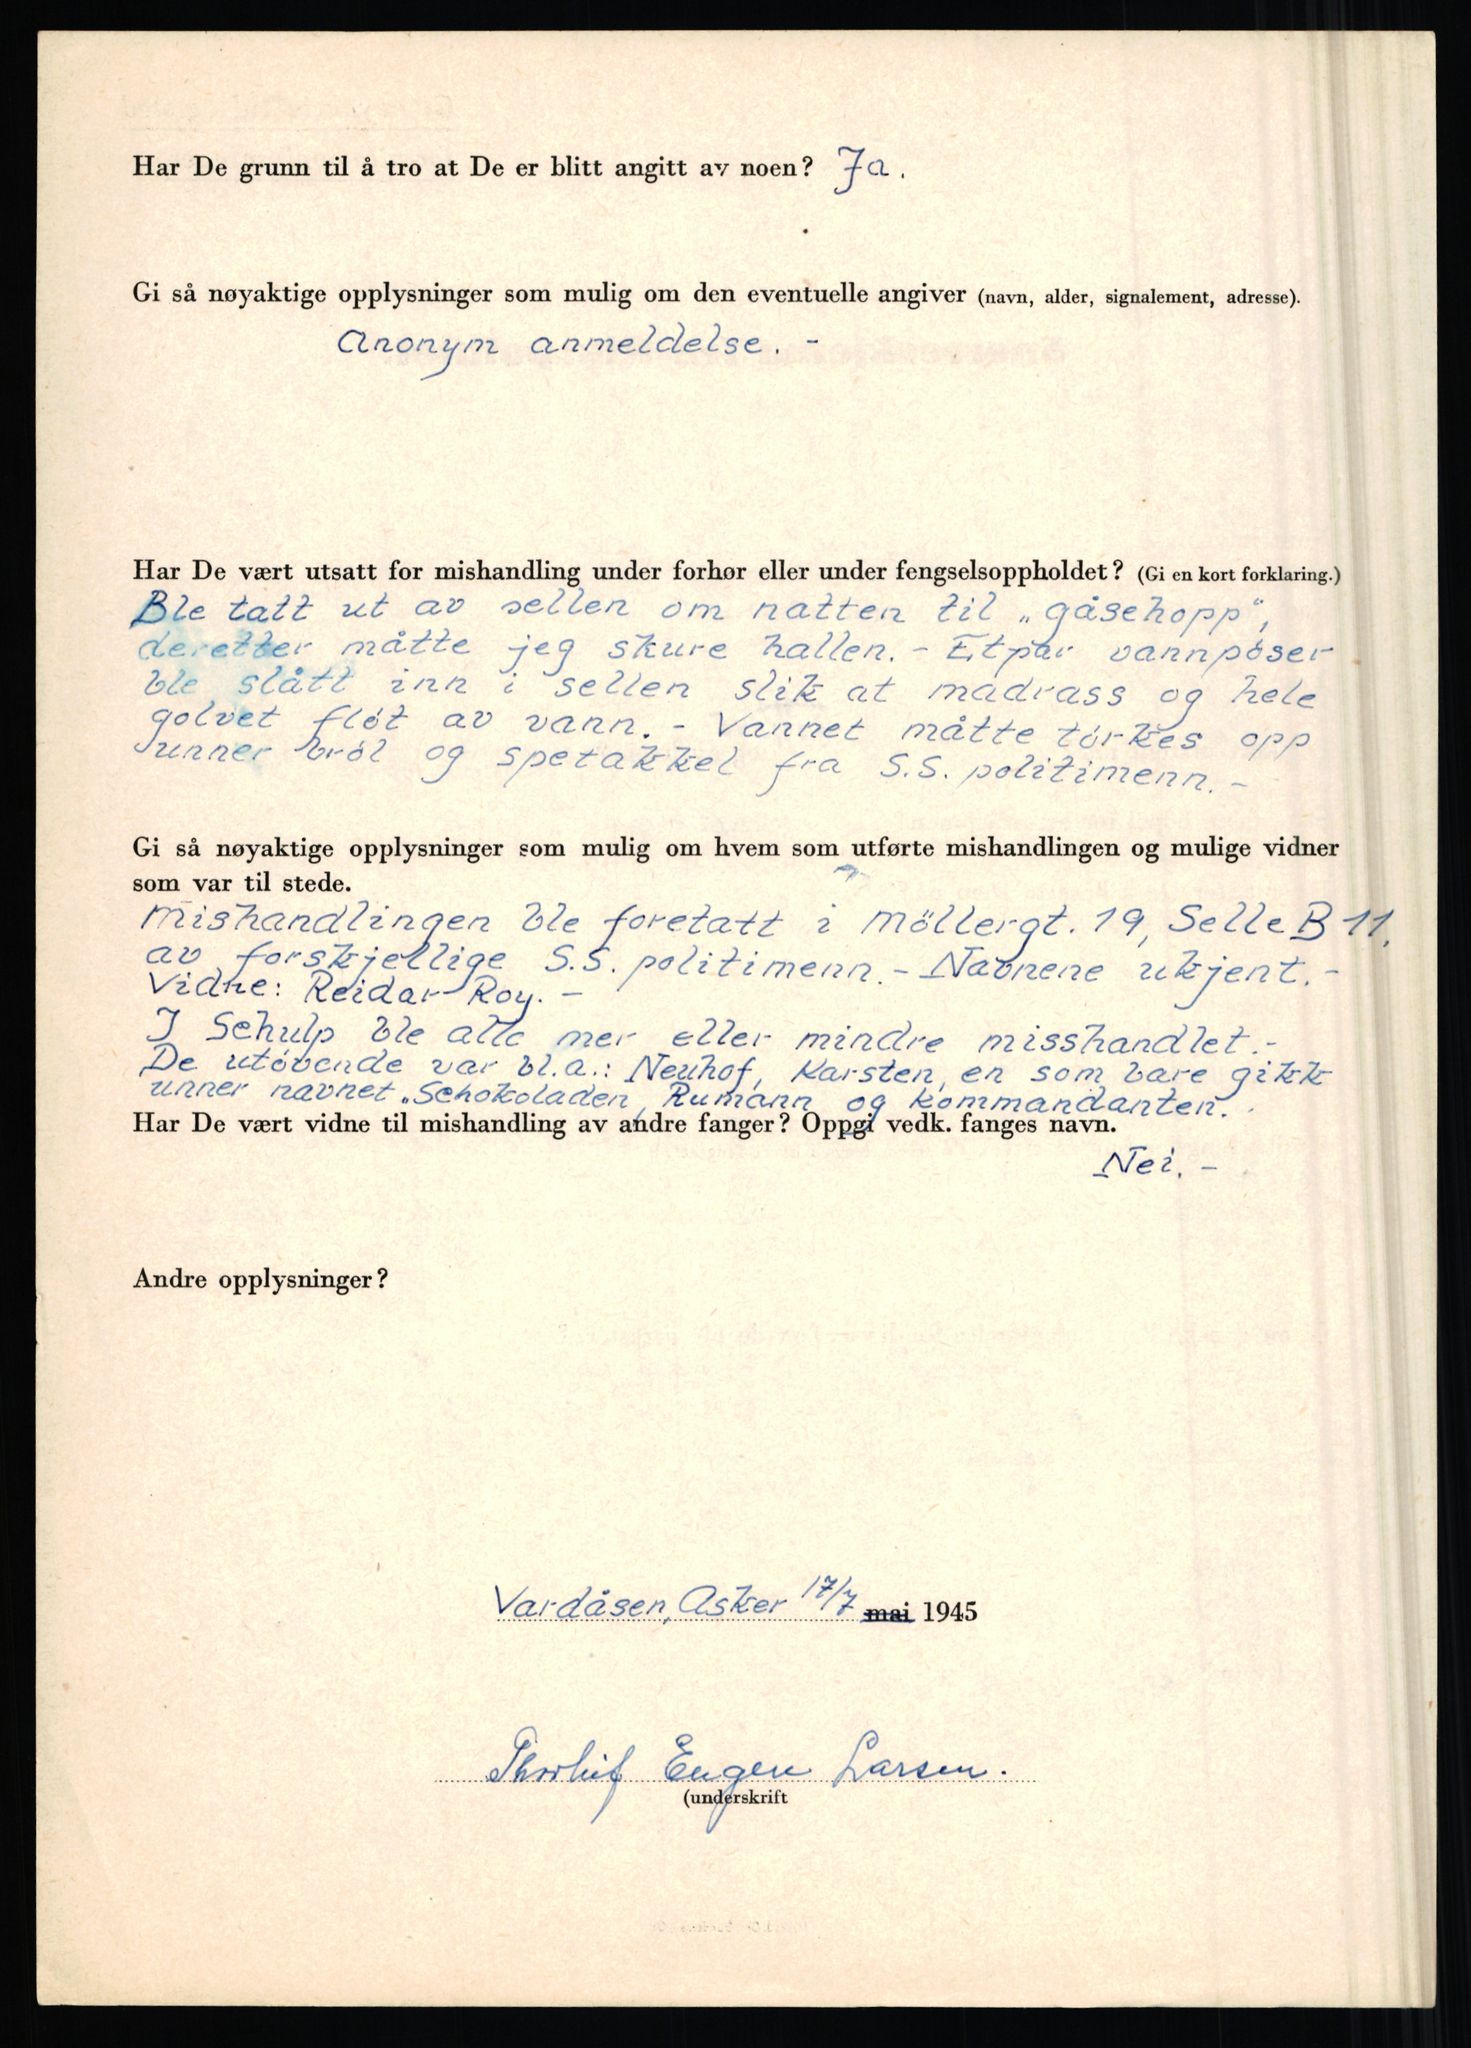 Har De grunn til å tro at De er blitt angitt av noen? Ja.
Gi så nøyaktige opplysninger som mulig om den eventuelle angiver (navn, alder, signalement, adresse).
Anonym anmeldelse. -
Har De vært utsatt for mishandling under forhør eller under fengselsoppholdet? (Gi en kort forklaring.)
Ble tatt ut av sellen om natten til „gåsehopp“,
deretter måtte jeg skure hallen. - Etpar vannpøser
ble slått inn i sellen slik at madrass og hele
golvet fløt av vann. - Vannet måtte tørkes opp
unner brøl og spetakkel fra S.S. politimenn. -
Gi så nøyaktige opplysninger som mulig om hvem som utførte mishandlingen og mulige vidner
som var til stede.
Mishandlingen ble foretatt i Möllergt. 19, Selle B 11.
av forskjellige S.S. politimenn. - Navnene ukjent. -
Vidne: Reidar Roy. -
I Schulp ble alle mer eller mindre misshandlet. -
De utøvende var bl.a.: Neuhof, Karsten, en som bare gikk
unner navnet „Schokoladen, Rumann og kommandanten.
Har De vært vidne til mishandling av andre fanger? Oppgi vedk. fanges navn.
Nei. -
Andre opplysninger?
Vardåsen, Asker 17/7 mai 1945
Thorleif Eugen Larsen.
(underskrift